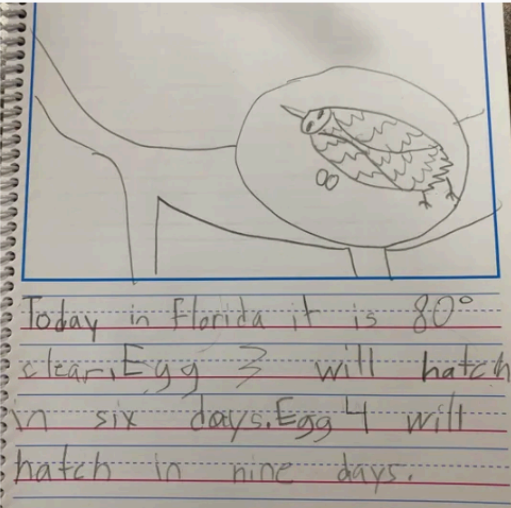 Today in Florida it is 80°
clear. Egg 3 will hatch
in six days. Egg 4 will
hatch in nine days.